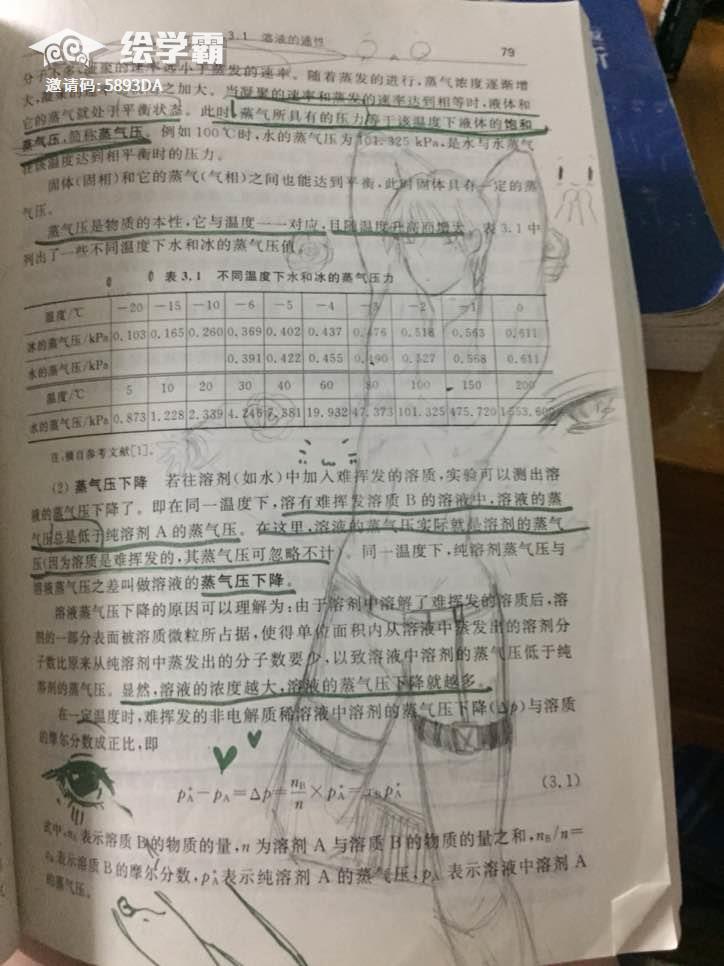 绘学霸
邀请码:5893DA
3.1 溶液的通性
79
的速率远小于蒸发的速率。随着蒸发的进行,蒸气浓度逐渐增
大,凝聚的 之加大。当凝聚的速率和蒸发的速率达到相等时,液体和
它的蒸气就处于平衡状态。此时,蒸气所具有的压力等于该温度下液体的饱和
蒸气压,简称蒸气压。例如100℃时,水的蒸气压为101.325 kPa,是水与水蒸气
在该温度达到相平衡时的压力。
固体(固相)和它的蒸气(气相)之间也能达到平衡,此时固体具有一定的蒸
气压。
蒸气压是物质的本性,它与温度一一对应,且随温度升高而增大。表3.1中
列出了一些不同温度下水和冰的蒸气压值。
表3.1 不同温度下水和冰的蒸气压力
温度/℃ -20 -15 -10 -6 -5 -4 -3 -2 -1 0
冰的蒸气压/kPa 0.103 0.165 0.260 0.369 0.402 0.437 0.476 0.518 0.563 0.611
水的蒸气压/kPa 0.391 0.422 0.455 0.490 0.527 0.568 0.611
温度/℃ 5 10 20 30 40 60 80 100 150 200
水的蒸气压/kPa 0.873 1.228 2.339 4.246 7.381 19.932 47.373 101.325 475.720 1553.600
注:摘自参考文献[1]。
(2) 蒸气压下降 若往溶剂(如水)中加入难挥发的溶质,实验可以测出溶
液的蒸气压下降了。即在同一温度下,溶有难挥发溶质B的溶液中,溶液的蒸
气压总是低于纯溶剂A的蒸气压。在这里,溶液的蒸气压实际就是溶剂的蒸气
压(因为溶质是难挥发的,其蒸气压可忽略不计)。同一温度下,纯溶剂蒸气压与
溶液蒸气压之差叫做溶液的蒸气压下降。
溶液蒸气压下降的原因可以理解为:由于溶剂中溶解了难挥发的溶质后,溶
剂的一部分表面被溶质微粒所占据,使得单位面积内从溶液中蒸发出的溶剂分
子数比原来从纯溶剂中蒸发出的分子数要少,以致溶液中溶剂的蒸气压低于纯
溶剂的蒸气压。显然,溶液的浓度越大,溶液的蒸气压下降就越多。
在一定温度时,难挥发的非电解质稀溶液中溶剂的蒸气压下降(Δp)与溶质
的摩尔分数成正比,即
p*A-pA=Δp=nB/n×p*A=xBp*A (3.1)
式中,nB表示溶质B的物质的量,n为溶剂A与溶质B的物质的量之和,nB/n=
xB表示溶质B的摩尔分数,p*A表示纯溶剂A的蒸气压,pA表示溶液中溶剂A
的蒸气压。